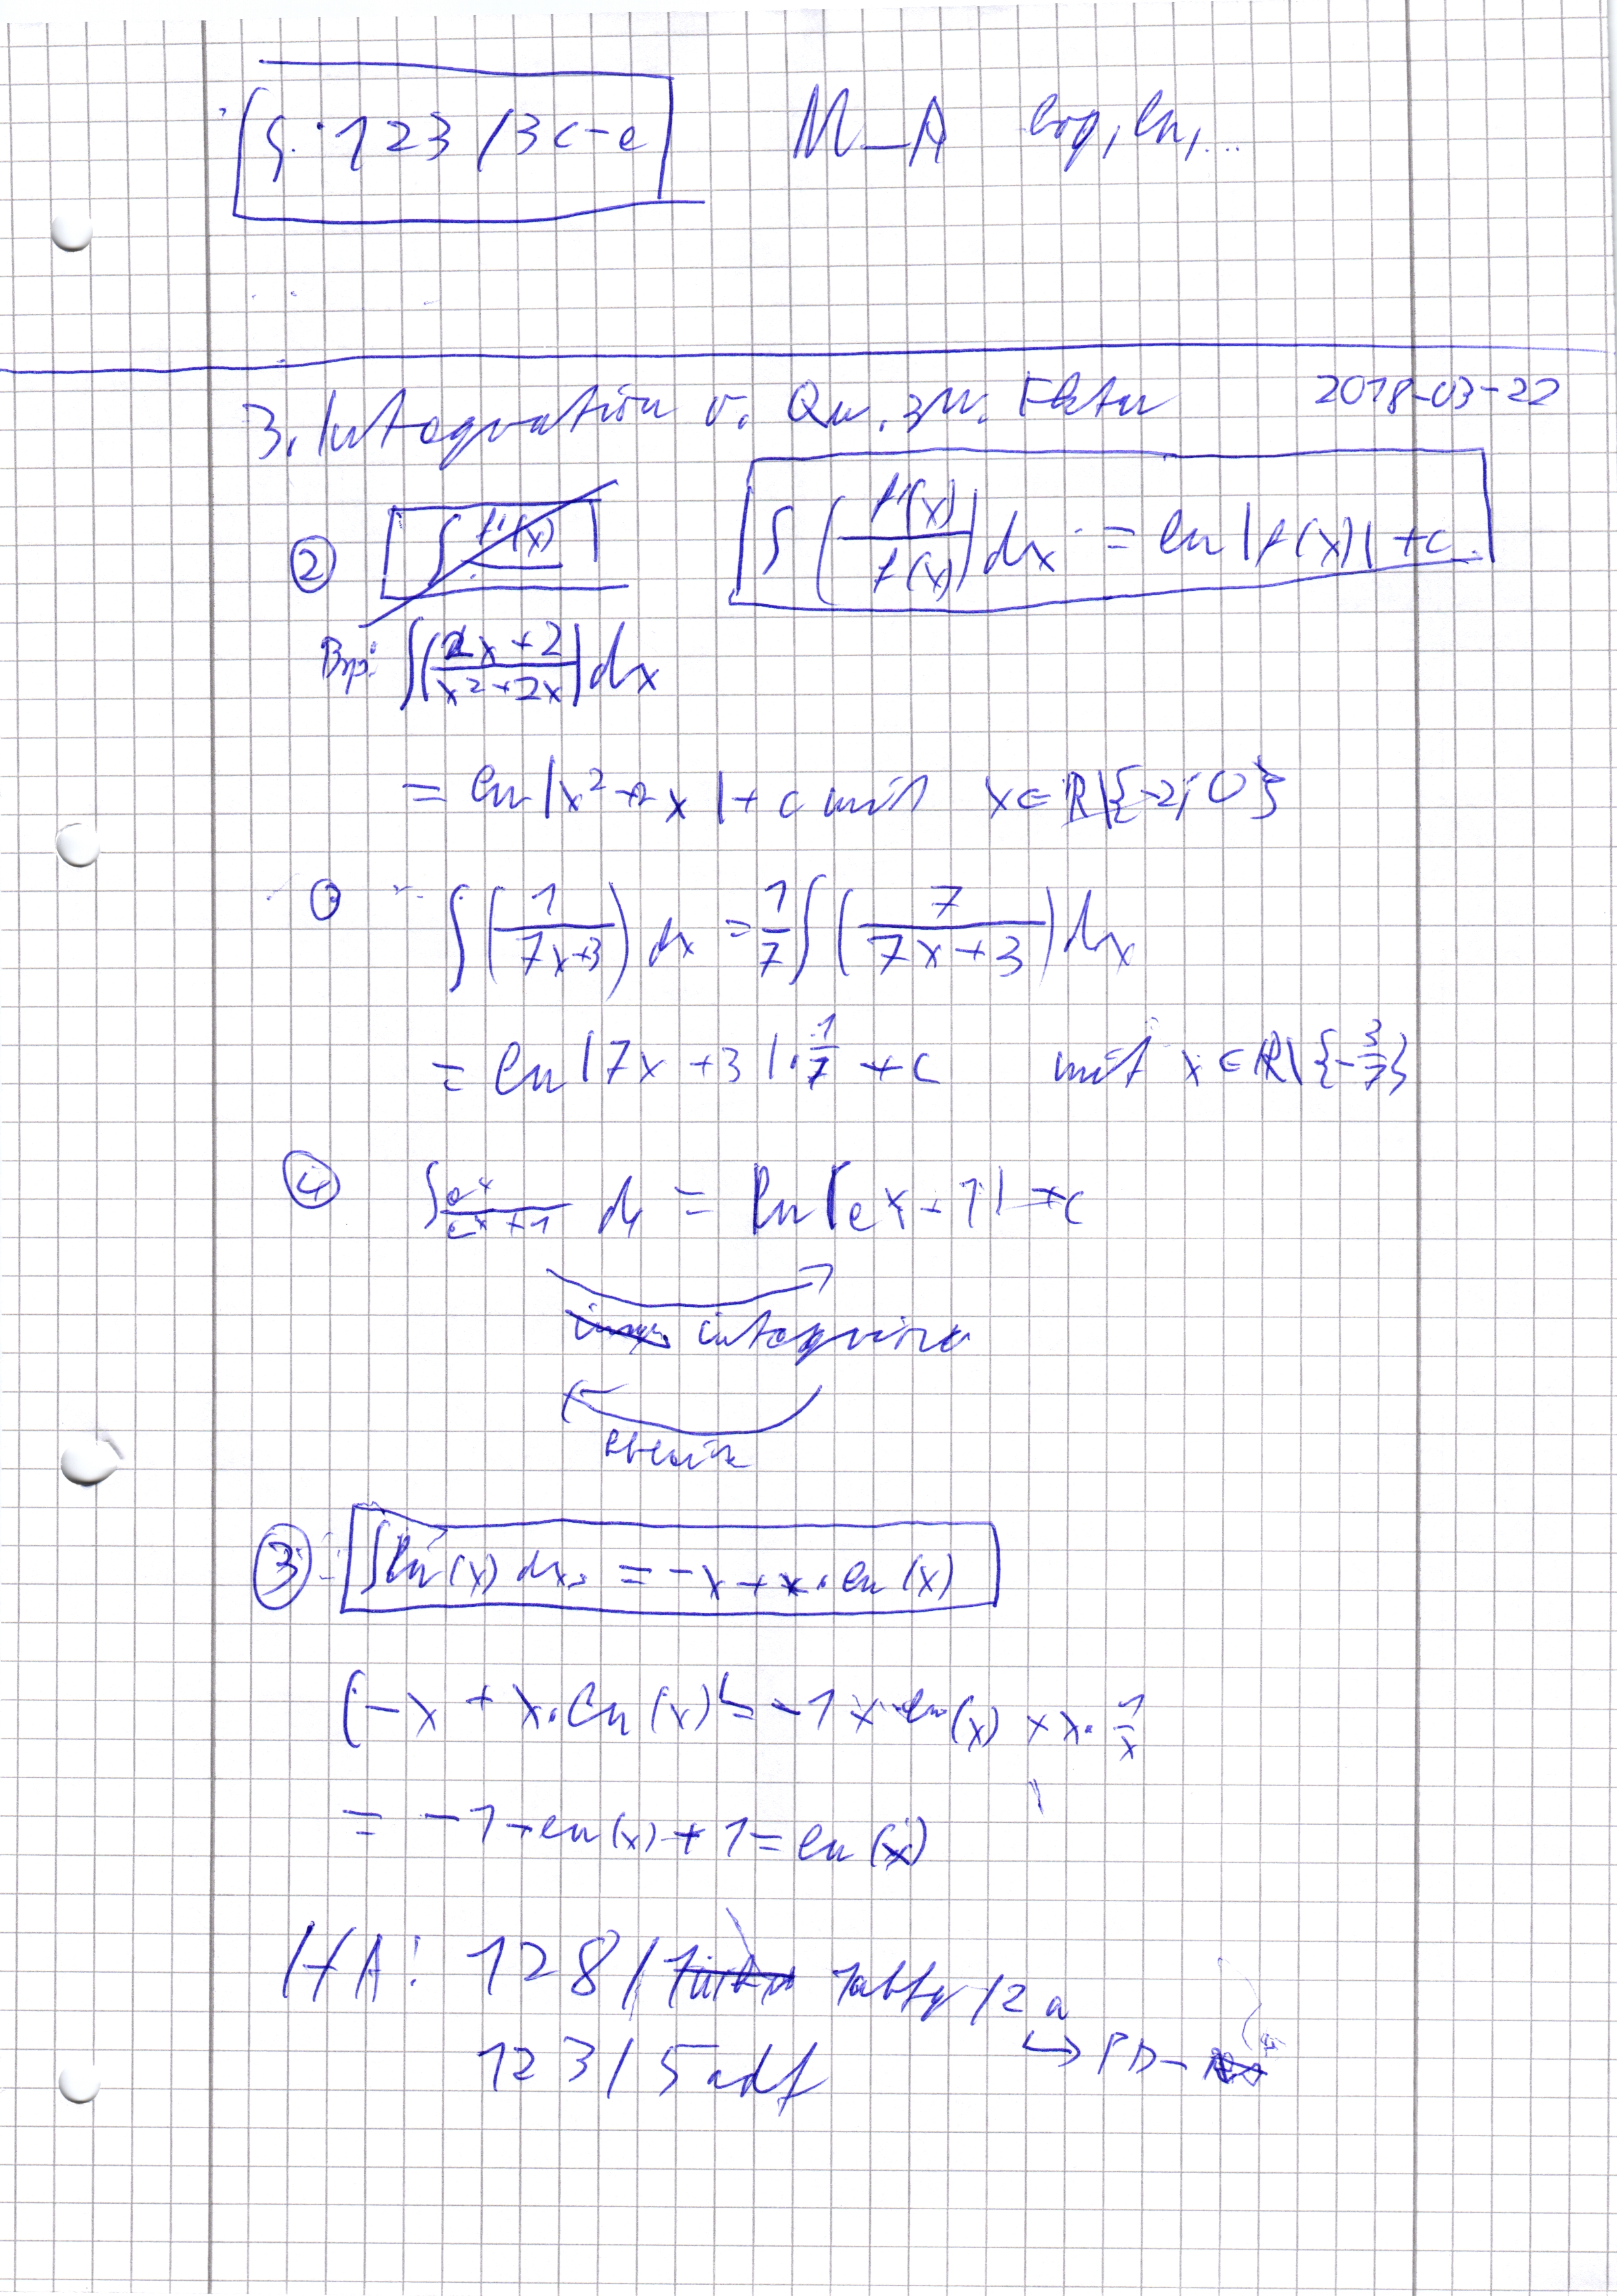 S. 123 / 3c-e M_A log, ln, ...
3. Integration v. Qu. zw. Fktn 2018-03-22
② ∫ f'(x) ∫ (f'(x)/f(x)) dx = ln |f(x)| + c
Bsp: ∫ ((2x+2)/(x²+2x)) dx
= ln |x²+2x| + c mit x ∈ ℝ\{-2; 0}
① ∫ (1/(7x+3)) dx = 1/7 ∫ (7/(7x+3)) dx
= ln |7x+3| · 1/7 + c mit x ∈ ℝ\{-3/7}
④ ∫ e^x/(e^x+1) dx = ln |e^x+1| + c
integriere
ableite
③ ∫ ln (x) dx = -x + x · ln (x)
(-x + x · ln (x))' = -1 + ln (x) + x · 1/x
= -1 + ln (x) + 1 = ln (x)
HA: 128 / /2 a
123 / 5adf